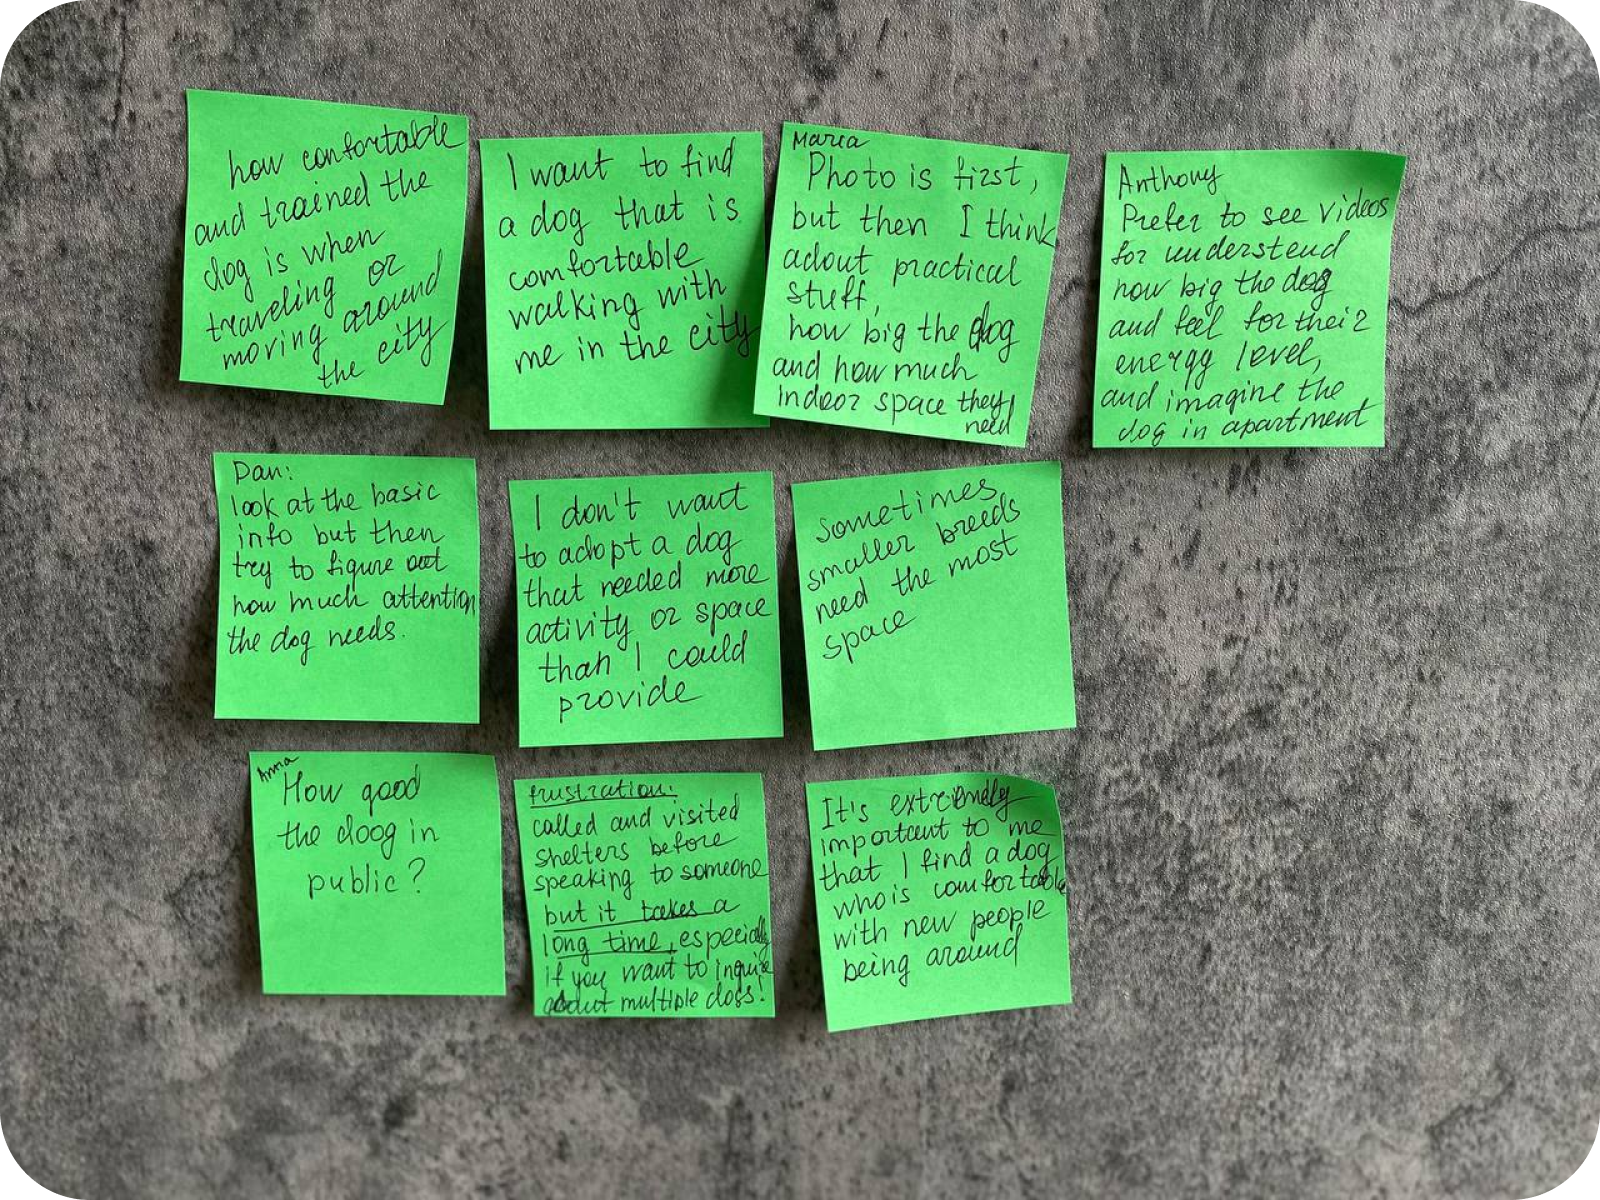 how confortable
and trained the
dog is when
traveling or
moving around
the city
I want to find
a dog that is
comfortable
walking with
me in the city
Maria
Photo is first,
but then I think
adout practical
stuff,
how big the dog
and how much
indoor space they
need
Anthony
Prefer to see videos
for understend
how big the dog
and feel for their
energy level,
and imagine the
dog in apartment
Dan:
look at the basic
info but then
try to figure out
how much attention
the dog needs.
I don't want
to adopt a dog
that needed more
activity or space
than I could
provide
sometimes
smaller breeds
need the most
space
Anna
How good
the doog in
public?
frustration:
called and visited
shelters before
speaking to someone
but it takes a
long time, especially
if you want to inquire
about multiple dogs!
It's extremely
important to me
that I find a dog
who is comfortable
with new people
being around